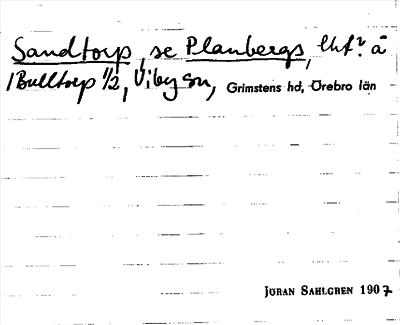 Sandtorp, se Planbergs, lht? å
1 Bulltorp 1/2, Viby sn, Grimstens hd, Örebro län
JÖRAN SAHLGREN 1907